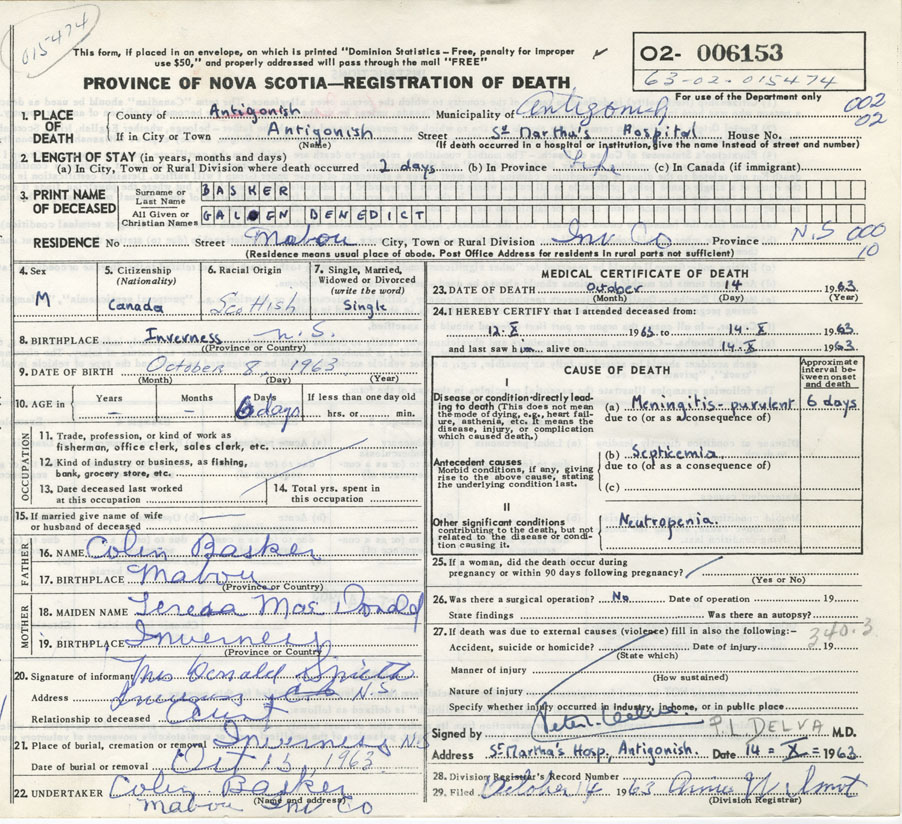 015474
This form, if placed in an envelope, on which is printed "Dominion Statistics – Free, penalty for improper
use $50," and properly addressed will pass through the mail "FREE"
02- 006153
63-02-015474
For use of the Department only
PROVINCE OF NOVA SCOTIA—REGISTRATION OF DEATH
1. PLACE OF DEATH
County of Antigonish Municipality of Antigonish 002
02
If in City or Town Antigonish Street St Martha's Hospital House No.
(Name) (If death occurred in a hospital or institution, give the name instead of street and number)
2. LENGTH OF STAY (in years, months and days)
(a) In City, Town or Rural Division where death occurred 2 days (b) In Province Life (c) In Canada (if immigrant)
3. PRINT NAME OF DECEASED
Surname or Last Name BASKER
All Given or Christian Names GALEN BENEDICT
RESIDENCE No Street Mabou City, Town or Rural Division Inv Co Province N.S 000
10
(Residence means usual place of abode. Post Office Address for residents in rural parts not sufficient)
4. Sex
M
5. Citizenship
(Nationality)
Canada
6. Racial Origin
Scottish
7. Single, Married,
Widowed or Divorced
(write the word)
Single
8. BIRTHPLACE Inverness N.S.
(Province or Country)
9. DATE OF BIRTH October 8, 1963
(Month) (Day) (Year)
10. AGE in
Years –
Months –
Days 6 days
If less than one day old
hrs. or min.
OCCUPATION
11. Trade, profession, or kind of work as
fisherman, office clerk, sales clerk, etc.
12. Kind of industry or business, as fishing,
bank, grocery store, etc.
13. Date deceased last worked
at this occupation
14. Total yrs. spent in
this occupation
15. If married give name of wife
or husband of deceased —
FATHER
16. NAME Colin Basker
17. BIRTHPLACE Mabou
(Province or Country)
MOTHER
18. MAIDEN NAME Teresa Mac Donald
19. BIRTHPLACE Inverness
(Province or Country)
20. Signature of informant Mrs Donald Smith
Address Inverness N.S
Relationship to deceased Aunt
21. Place of burial, cremation or removal Inverness N.S
Date of burial or removal Oct 15, 1963
22. UNDERTAKER Colin Basker
(Name and address)
Mabou Inv Co
MEDICAL CERTIFICATE OF DEATH
23. DATE OF DEATH October 14 1963
(Month) (Day) (Year)
24. I HEREBY CERTIFY that I attended deceased from:
12. X 1963 to 14. X 1963
and last saw him alive on 14. X 1963
CAUSE OF DEATH
Approximate
interval between
onset
and death
I
Disease or condition directly leading
to death (This does not mean
the mode of dying, e.g., heart failure,
asthenia, etc. It means the
disease, injury, or complication
which caused death.)
(a) Meningitis - purulent 6 days
due to (or as a consequence of)
Antecedent causes
Morbid conditions, if any, giving
rise to the above cause, stating
the underlying condition last.
(b) Septicemia
due to (or as a consequence of)
(c)
II
Other significant conditions
contributing to the death, but not
related to the disease or condition
causing it.
Neutropenia.
25. If a woman, did the death occur during
pregnancy or within 90 days following pregnancy?
(Yes or No)
26. Was there a surgical operation? No Date of operation 19
State findings Was there an autopsy?
27. If death was due to external causes (violence) fill in also the following:–
340.3
Accident, suicide or homicide? Date of injury 19
(State which)
Manner of injury
(How sustained)
Nature of injury
Specify whether injury occurred in industry, in home, or in public place
Signed by P.L DELVA M.D.
Address St Martha's Hosp, Antigonish. Date 14 = X = 1963
28. Division Registrar's Record Number
29. Filed October 14 1963
(Division Registrar)